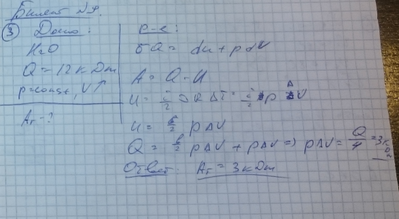 Билет №9
③ Дано:
H₂O
Q = 12 кДж
p=const, V↑
Aг - ?
Р-е:
δQ = dU + pdV
A = Q - U
U = i/2 νRΔT = i/2 pΔV
U = 6/2 pΔV
Q = 6/2 pΔV + pΔV => pΔV = Q/4 = 3кДж
Ответ: Aг = 3кДж